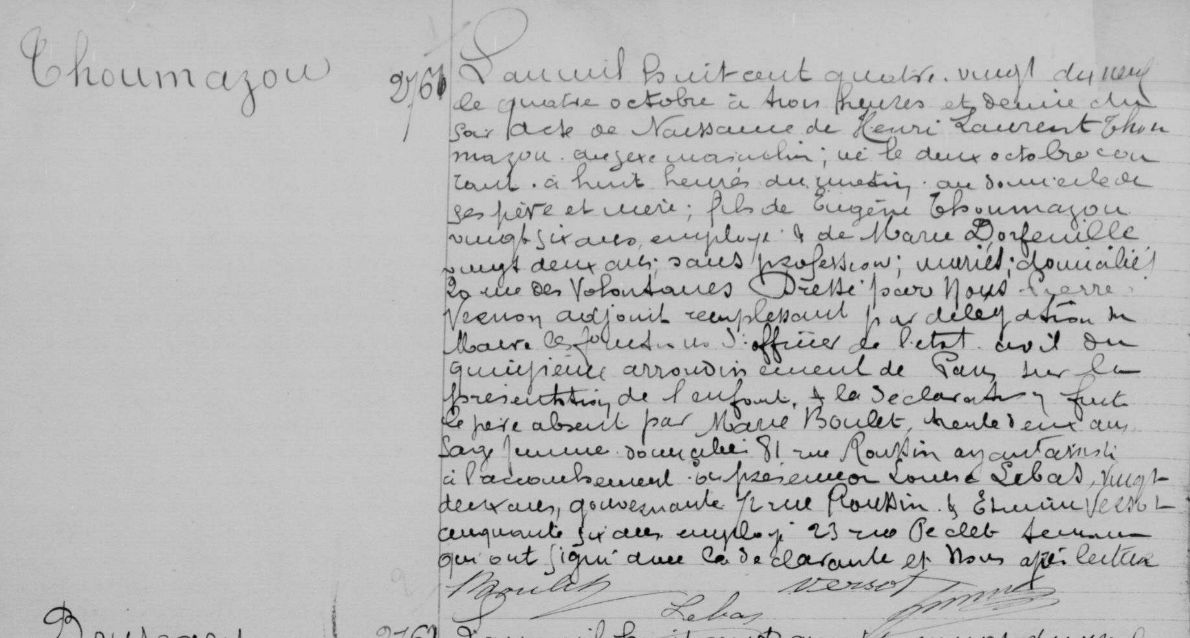 Thoumazou
2761
L'an mil huit cent quatre-vingt dix neuf
le quatre octobre à trois heures et demie du
soir acte de Naissance de Henri Laurent Thou
mazou du sexe masculin; né le deux octobre cou
rant à huit heures du matin au domicile de
ses père et mère; fils de Eugène Thoumazou
vingt six ans, employé & de Marie Dorfeuille
vingt deux ans; sans profession; mariés; domiciliés
20 rue des Volontaires Dressé par Nous Pierre
Vernon adjoint remplissant par délégation du
Maire les fonctions d'officier de l'état civil du
quinzième arrondissement de Paris sur la
présentation de l'enfant, & la déclaration faite
le père absent par Marie Boulet, trente deux ans
sage femme domiciliée 81 rue Roussin ayant assisté
à l'accouchement en présence de Louise Lebas, vingt
deux ans, gouvernante rue Roussin & Versot
cinquante six ans employé 23 rue Peclet témoins
qui ont signé avec la déclarante et Nous après lecture
Boulet Versot
Lebas
L'an mil huit cent quatre vingt dix neuf